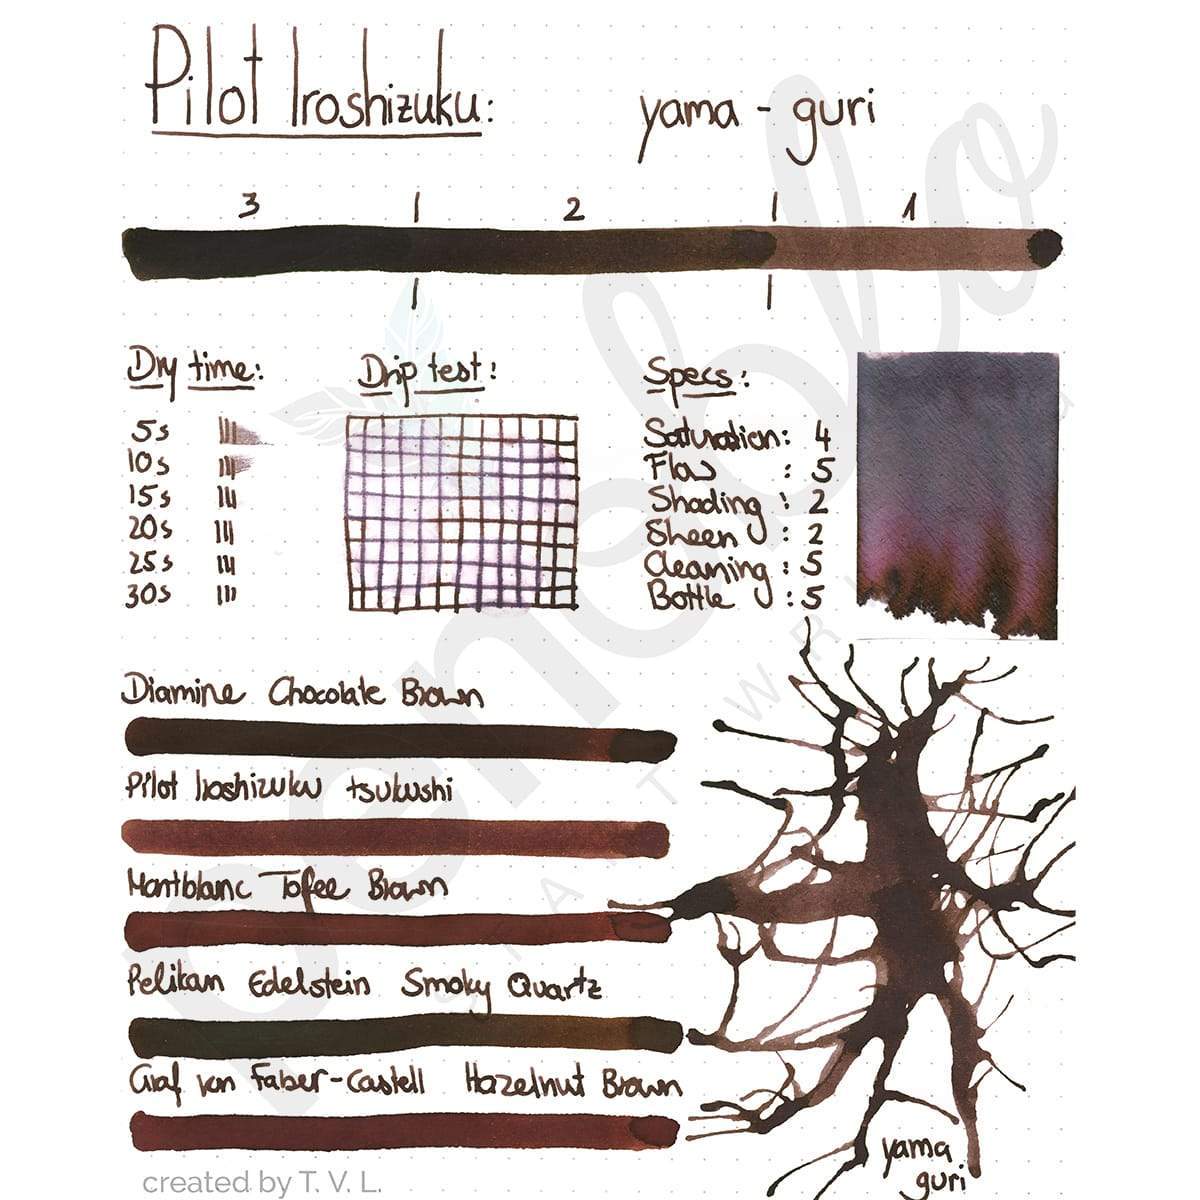 Pilot Iroshizuku: yama - guri
3 | 2 | 1
Dry time: Drip test: Specs:
5s
10s
15s
20s
25s
30s
Saturation: 4
Flow : 5
Shading : 2
Sheen : 2
Cleaning : 5
Bottle : 5
Diamine Chocolate Brown
Pilot Iroshizuku tsukushi
Montblanc Toffee Brown
Pelikan Edelstein Smoky Quartz
Graf von Faber-Castell Hazelnut Brown
yama
guri
created by T. V. L.
penoblo